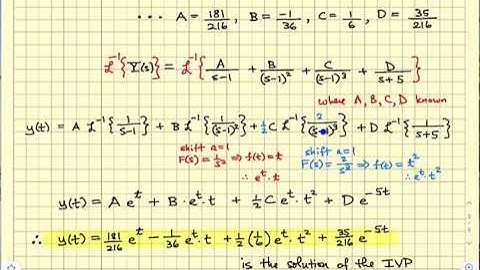 ... A = 181/216 , B = -1/36 , C = 1/6 , D = 35/216
ℒ⁻¹{Y(s)} = ℒ⁻¹{ A/(s-1) + B/(s-1)² + C/(s-1)³ + D/(s+5) }
where A, B, C, D known
y(t) = A ℒ⁻¹{1/(s-1)} + B ℒ⁻¹{1/(s-1)²} + ½ C ℒ⁻¹{2/(s-1)³} + D ℒ⁻¹{1/(s+5)}
shift a=1
F(s) = 1/s² ⇒ f(t) = t
∴ eᵗ·t
shift a=1
F(s) = 2/s² ⇒ f(t) = t²
∴ eᵗ·t²
y(t) = A eᵗ + B · eᵗ·t + ½ C eᵗ·t² + D e⁻⁵ᵗ
∴ y(t) = 181/216 eᵗ − 1/36 eᵗ·t + ½(1/6) eᵗ·t² + 35/216 e⁻⁵ᵗ
is the solution of the IVP